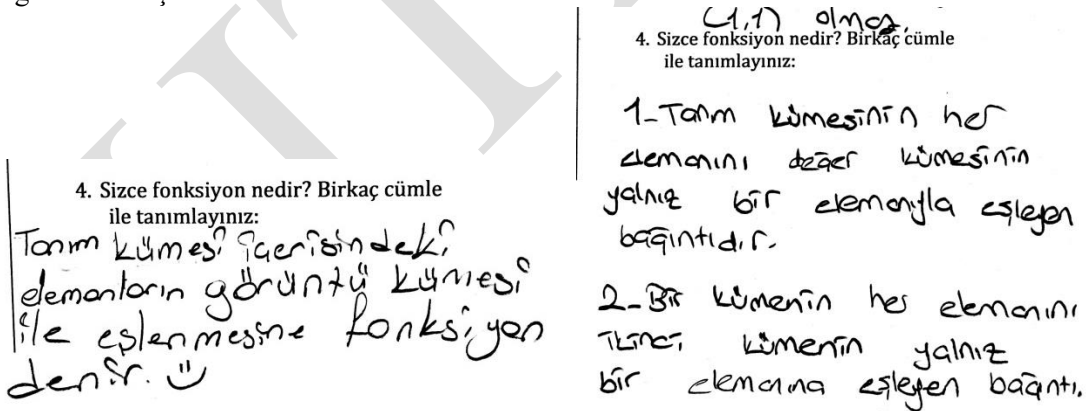 4. Sizce fonksiyon nedir? Birkaç cümle
ile tanımlayınız:
Tanım kümesi içerisindeki
elemanların görüntü kümesi
ile eşlenmesine fonksiyon
denir.
(1,1) olmaz.
4. Sizce fonksiyon nedir? Birkaç cümle
ile tanımlayınız:
1-Tanım kümesinin her
elemanını değer kümesinin
yalnız bir elemanıyla eşleyen
bağıntıdır.
2-Bir kümenin her elemanını
ikinci kümenin yalnız
bir elemanına eşleyen bağıntı.